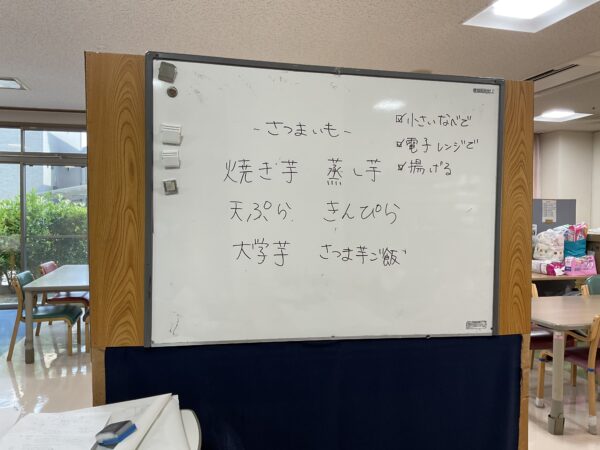 -さつまいも-
焼き芋 蒸し芋
天ぷら きんぴら
大学芋 さつま芋ご飯
☑小さいなべで
☑電子レンジで
☑揚げる